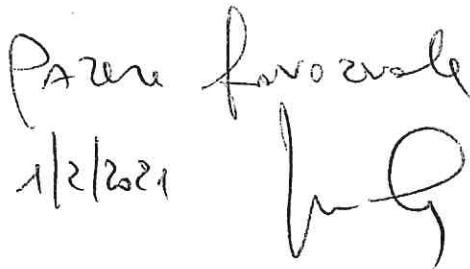 Parere favorevole
1/2/2021